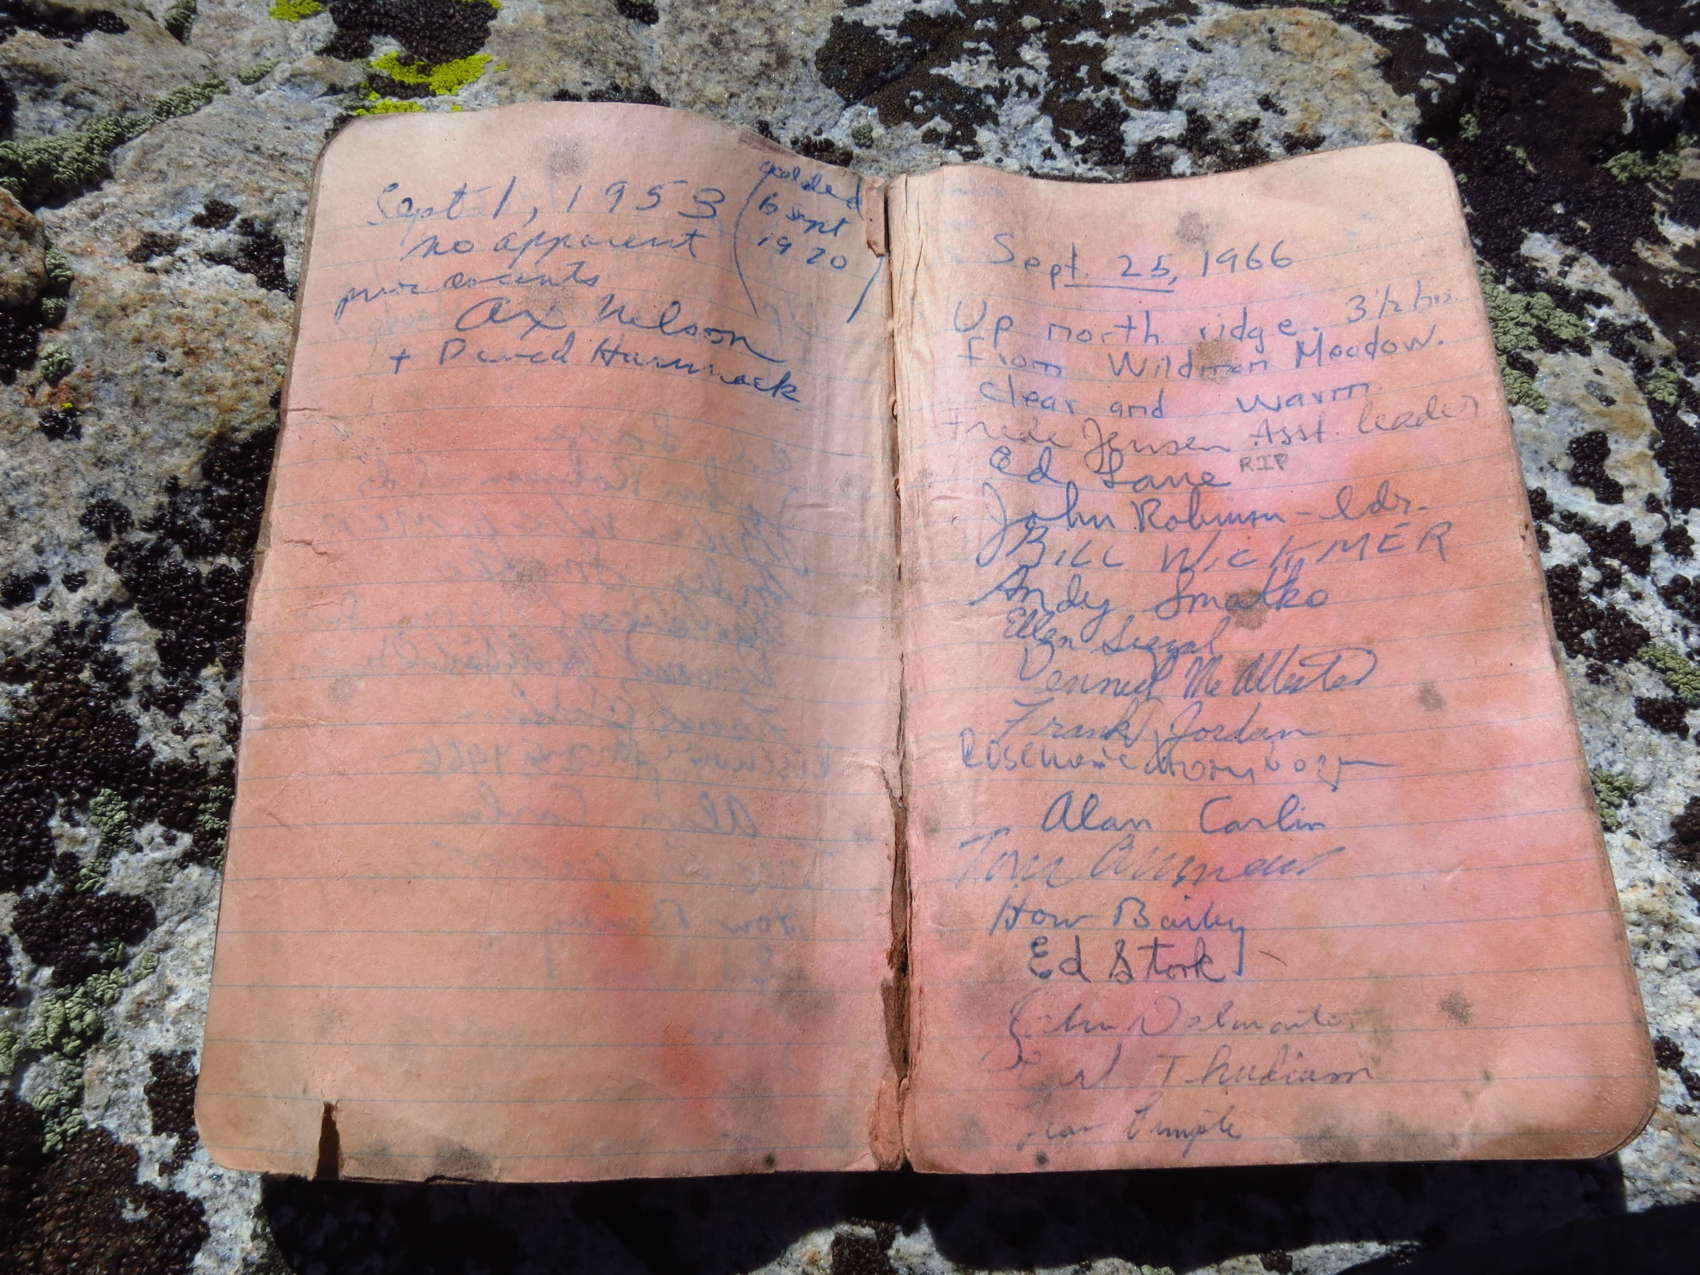 Sept 1, 1953
no apparent
prior ascents
Ax Nelson
+ David Hammack
(added
6 Sept
1970)
Sept. 25, 1966
Up north ridge. 3½ hrs.
from Wildman Meadow.
Clear and warm
Frede Jensen Asst. leader
Ed Lane RIP
John Robinson - ldr.
BILL WICKMER
Andy Smatko
Ellen Siegal
Frank Jordan
Rosemarie
Alan Carlin
Tom
How Bailey
Ed Stork
John Delmonte
Thudium